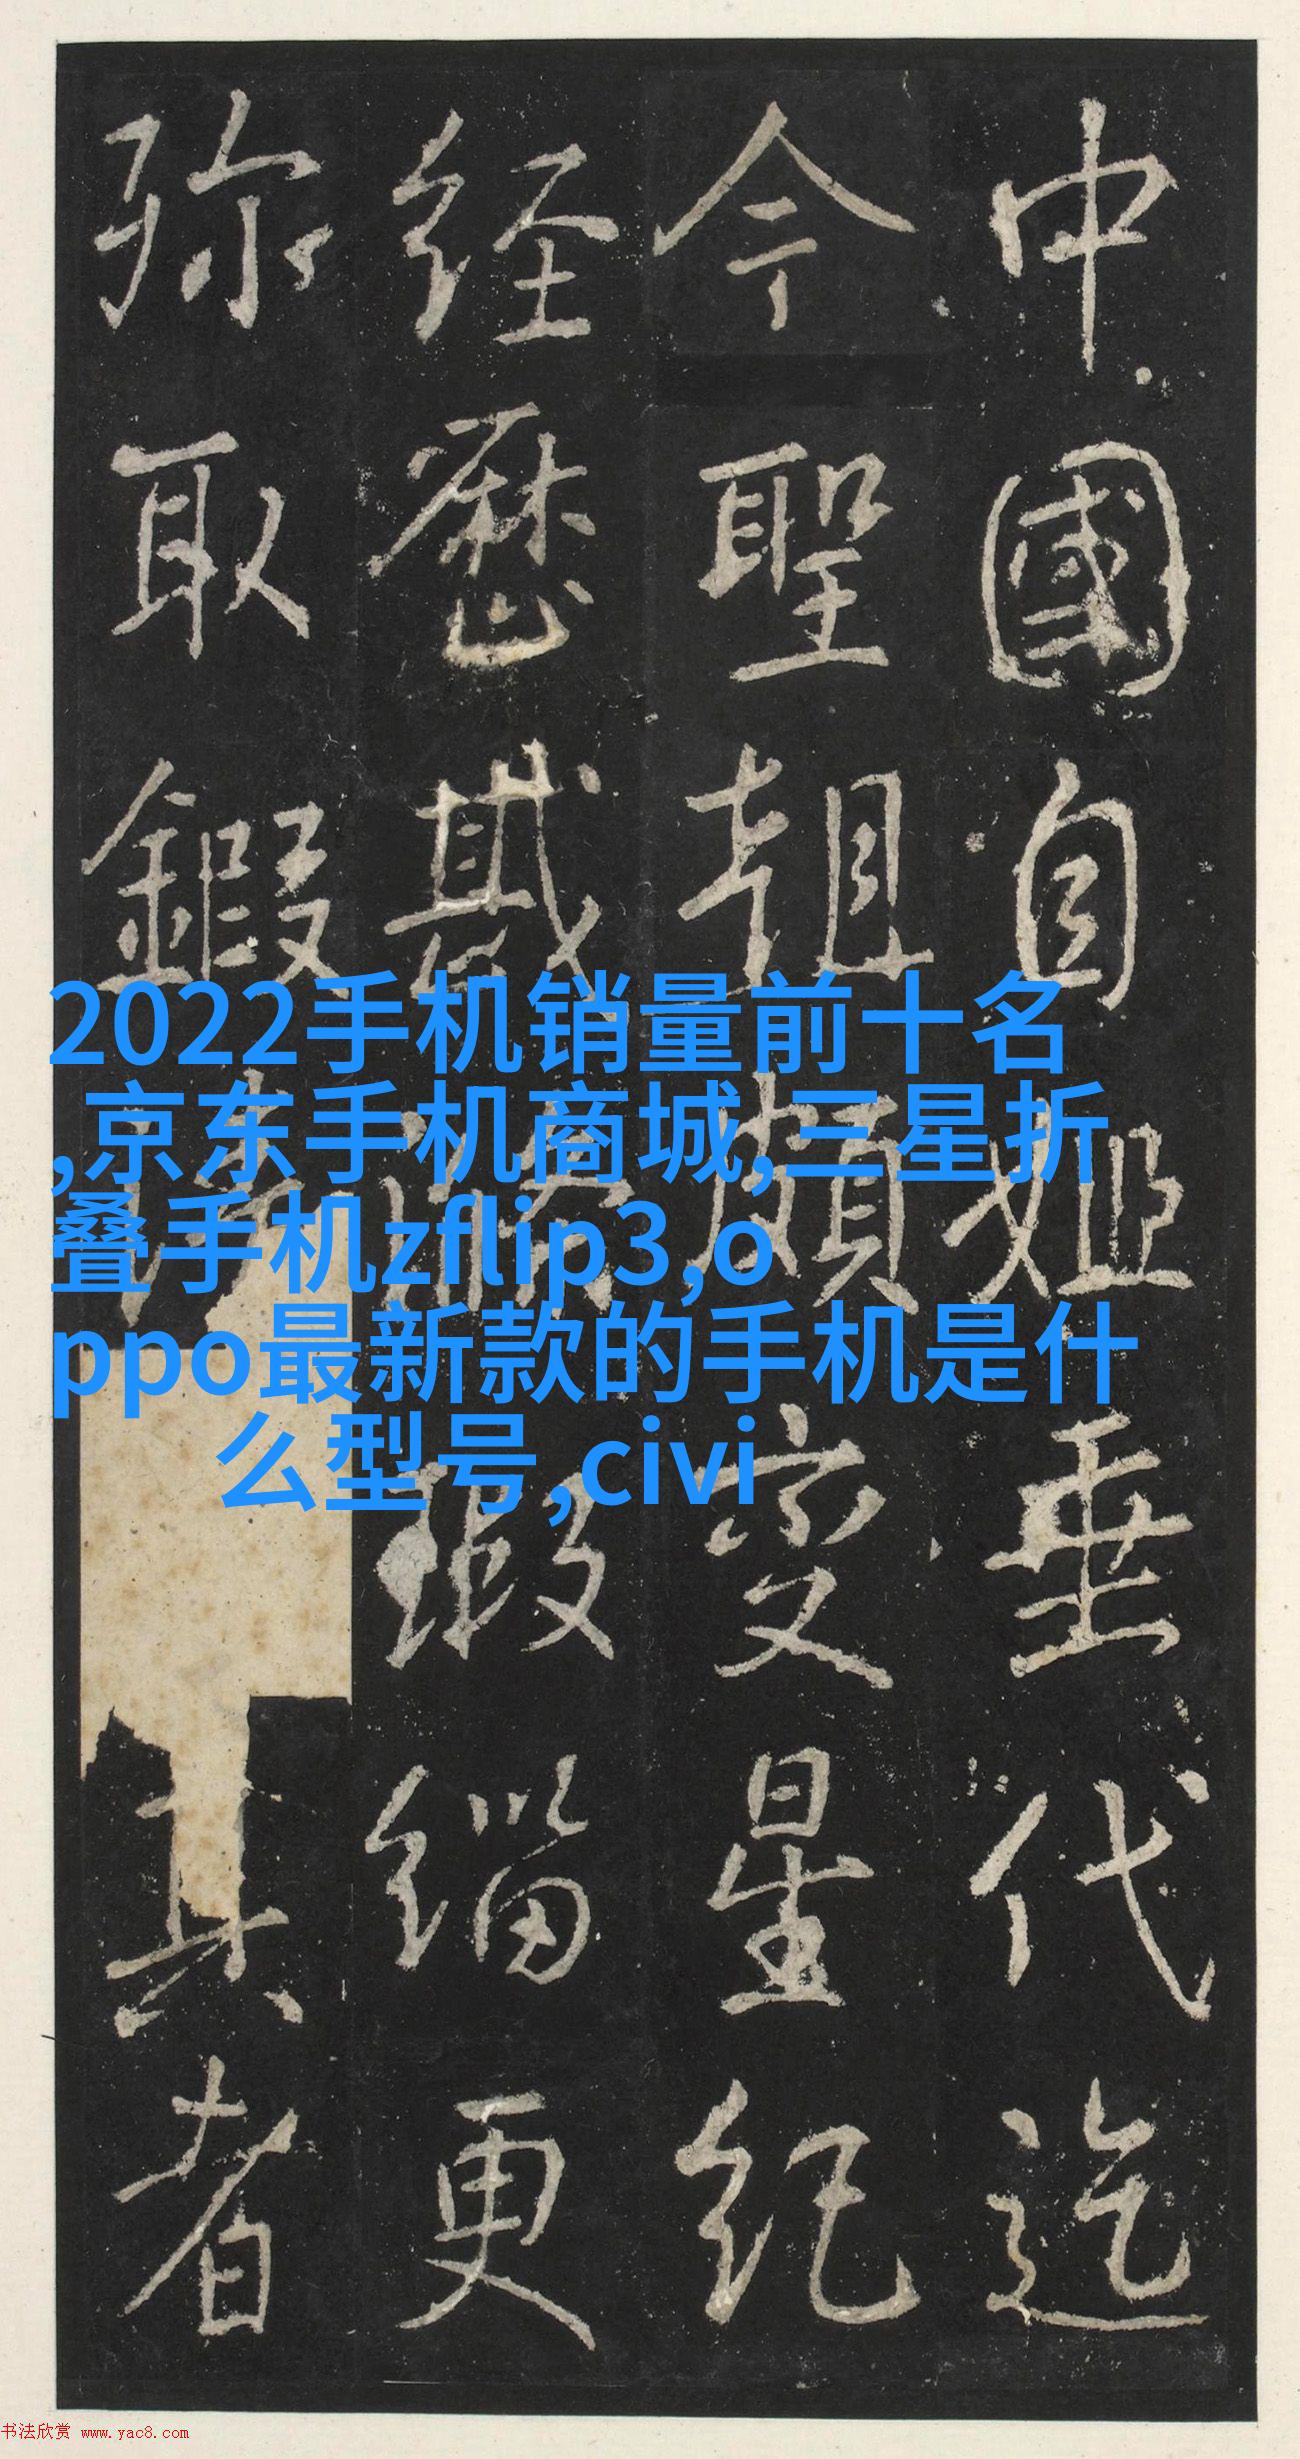 中國自姬垂代迄
今聖朝頗變星紀
经歷瑕緇更
弥取鍜真者
2022手机销量前十名
,京东手机商城,三星折
叠手机zflip3,o
ppo最新款的手机是什
么型号,civi
书法欣赏 www.yac8.com